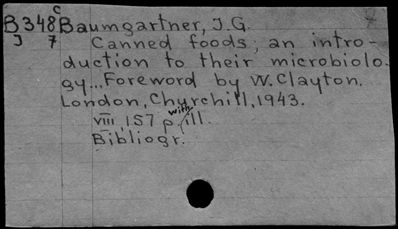 c
B348 Baumgartner, J.G.
J 7 Canned foods; an intro-
duction to their microbiolo-
gy... Foreword by W. Clayton.
London, Churchill, 1943.
viii, 157 p. with ill.
Bibliogr.